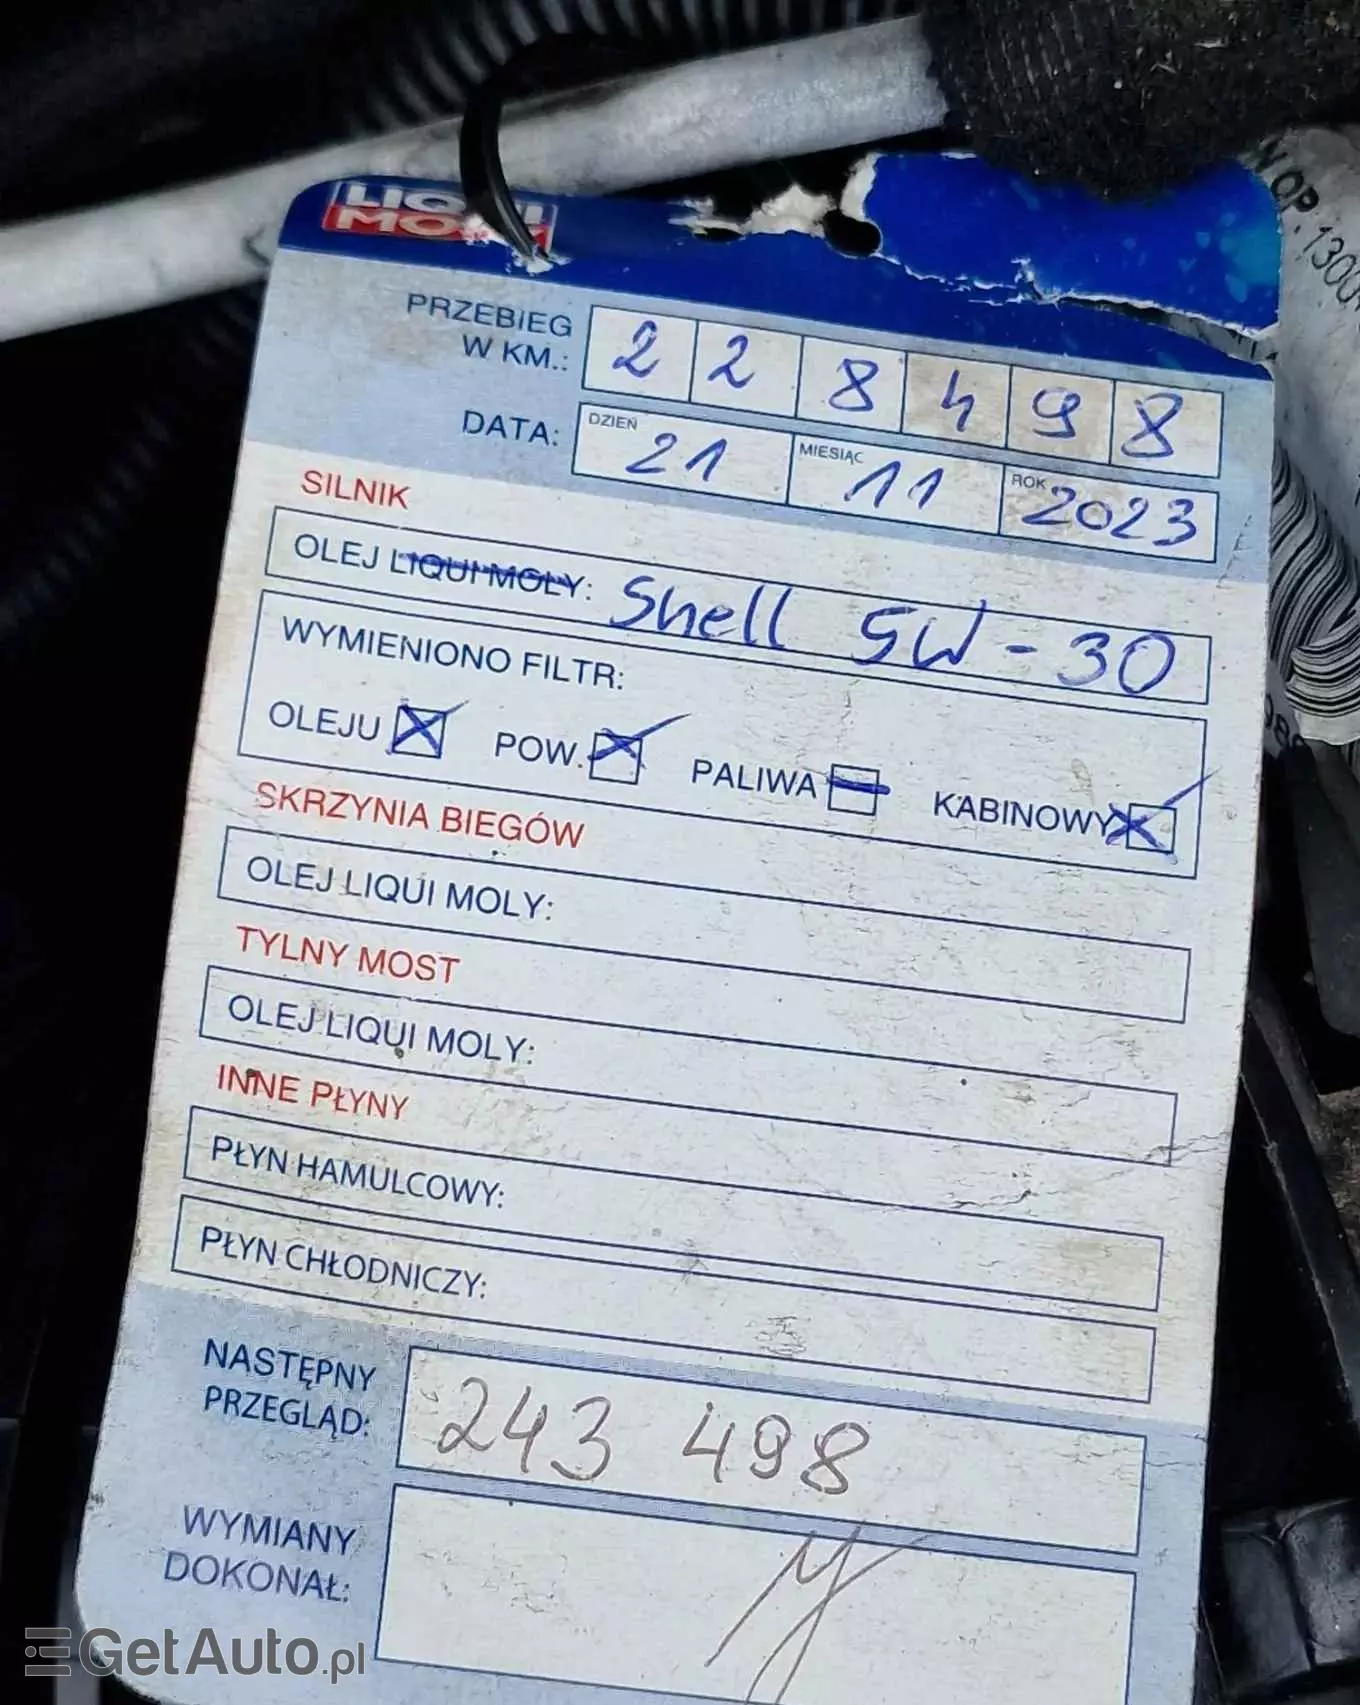 LIQUI
MOLY
PRZEBIEG
W KM.: 2 2 8 4 9 8
DATA: DZIEŃ 21 MIESIĄC 11 ROK 2023
SILNIK
OLEJ LIQUI MOLY: Shell 5W-30
WYMIENIONO FILTR:
OLEJU POW. PALIWA KABINOWY
SKRZYNIA BIEGÓW
OLEJ LIQUI MOLY:
TYLNY MOST
OLEJ LIQUI MOLY:
INNE PŁYNY
PŁYN HAMULCOWY:
PŁYN CHŁODNICZY:
NASTĘPNY
PRZEGLĄD: 243 498
WYMIANY
DOKONAŁ:
GetAuto.pl